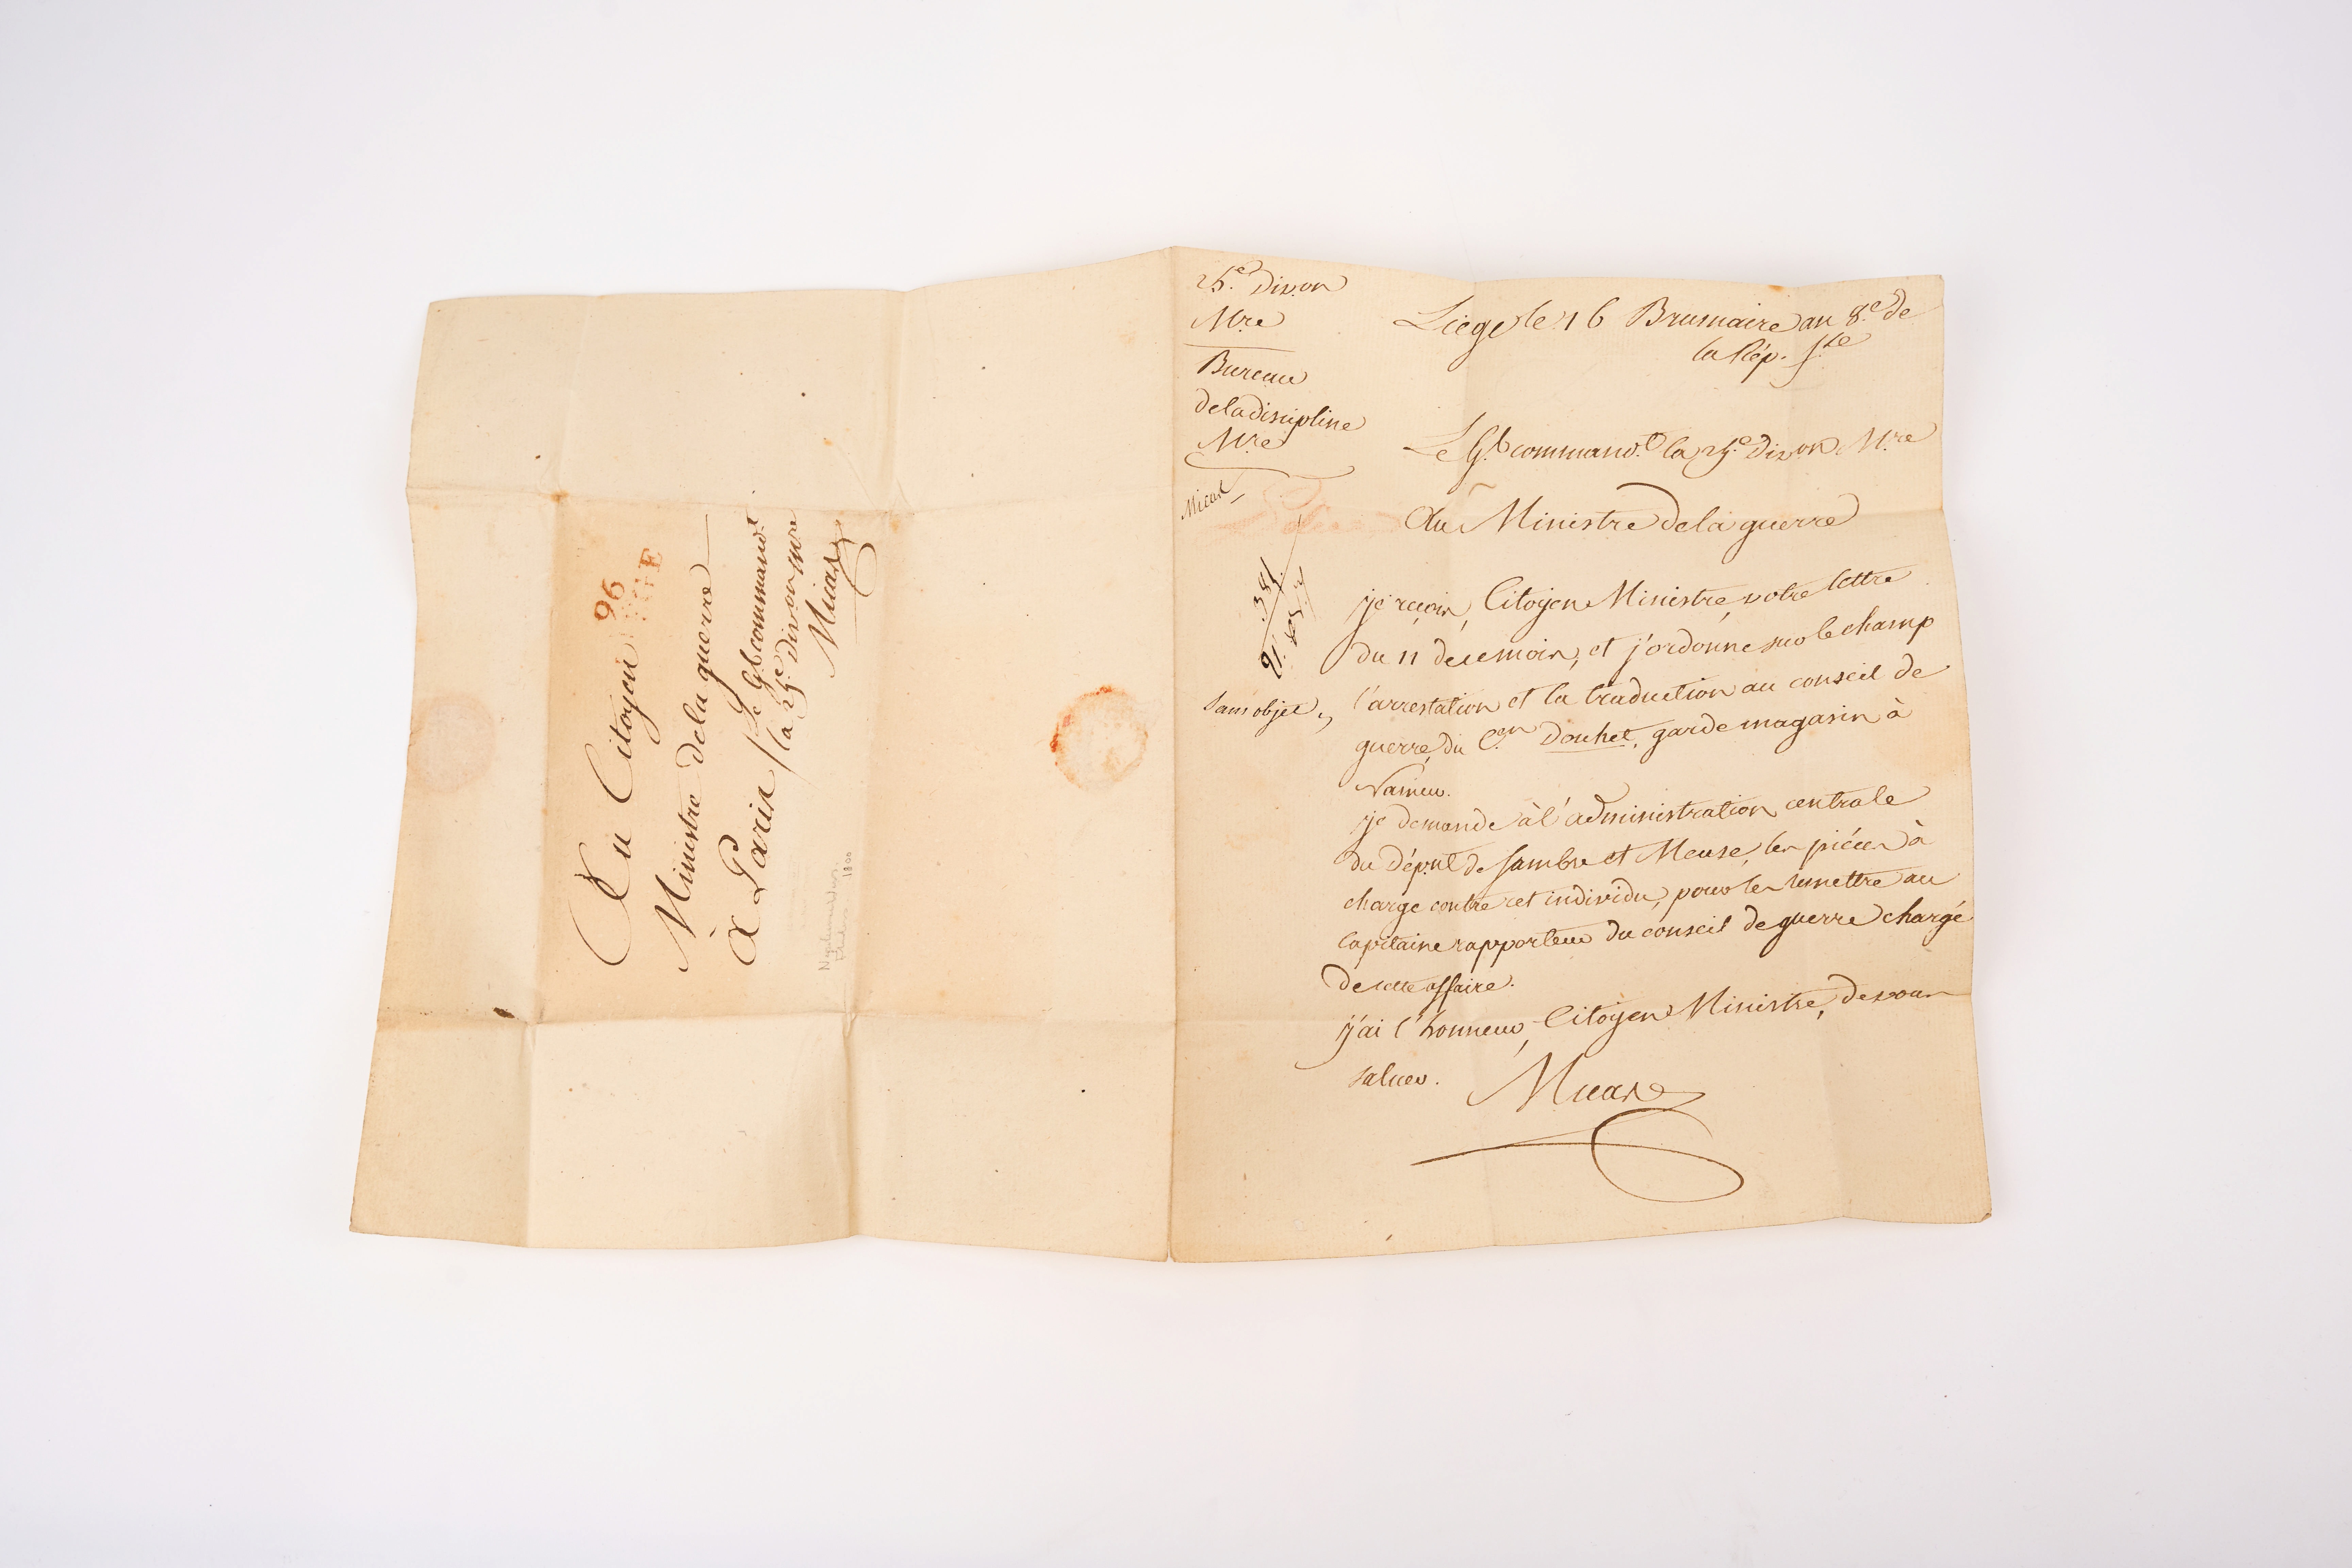 25.e Div.on
M.re
Bureau
de la discipline
M.re
Micas
Liege le 16 Brumaire an 8.e de
la Rép.
Le G.l command.t la 25.e Div.on M.re
Au Ministre de la guerre
91. 381.
Sans objet
je reçois, Citoyen Ministre, votre lettre
du 11 de ce mois, et j'ordonne sur le champ
l'arrestation et la traduction au conseil de
guerre, du C.en Douhet, garde magasin à
Namur.
je demande à l'administration centrale
du Dép.nt de Sambre et Meuse, les pièces à
charge contre cet individu, pour les remettre au
Capitaine rapporteur du conseil de guerre chargé
de cette affaire.
j'ai l'honneur, Citoyen Ministre, de vous
saluer.
Micas
96
LIEGE
Au Citoyen
Ministre de la guerre
à Paris
Le G.l command.t
la 25.e Div.on M.re
Micas
1800